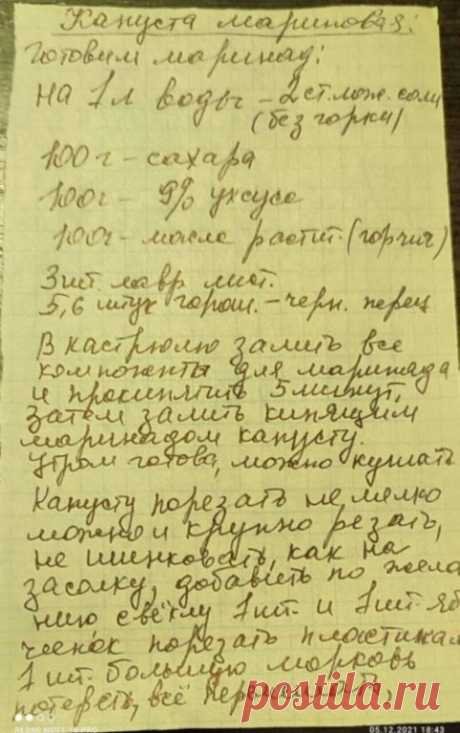 Капуста маринован:
Готовим маринад:
на 1л воды – 2 ст. лож. соли
(без горки)
100г – сахара
100г – 9% уксуса
100г – масла растит. (горчич)
3 шт. лавр. лист.
5,6 штук горош. – черн. перец
В кастрюлю залить все
компоненты для маринада
и прокипятить 5 минут,
затем залить кипящим
маринадом капусту.
Утром готова, можно кушать
Капусту порезать не мелко
можно и крупно резать,
не шинковать, как на
засолку, добавить по жела
нию свёклу 1 шт. и 1 шт. яб
чеснок порезать пластикам
1 шт. большую морковь
потереть, всё перемешать,
postila.ru
05.12.2021 18:43